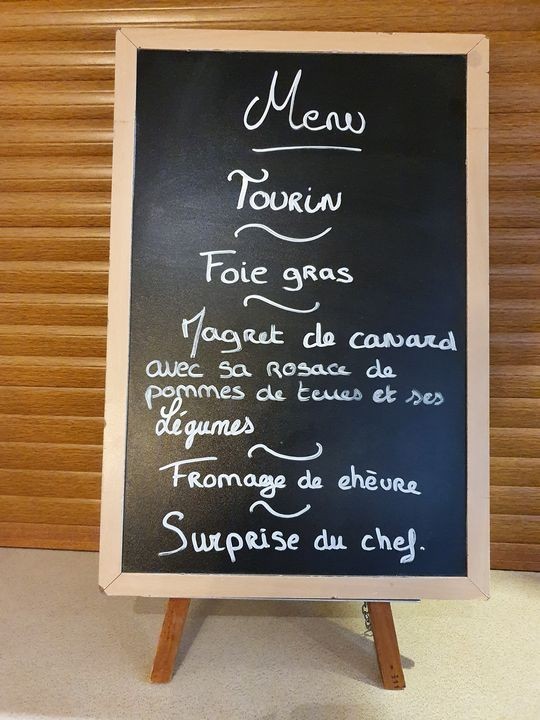 Menu
Tourin
Foie gras
Magret de canard
avec sa rosace de
pommes de terres et ses
Légumes
Fromage de chèvre
Surprise du chef.